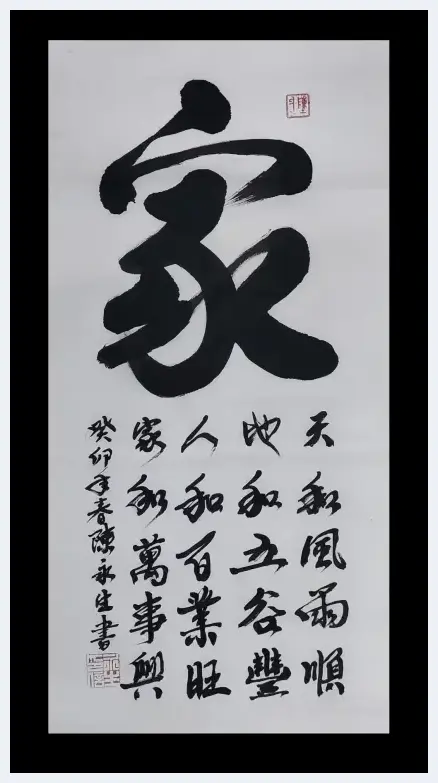 家
天和風雨順
地和五谷豐
人和百業旺
家和萬事興
癸卯年春陳永生書